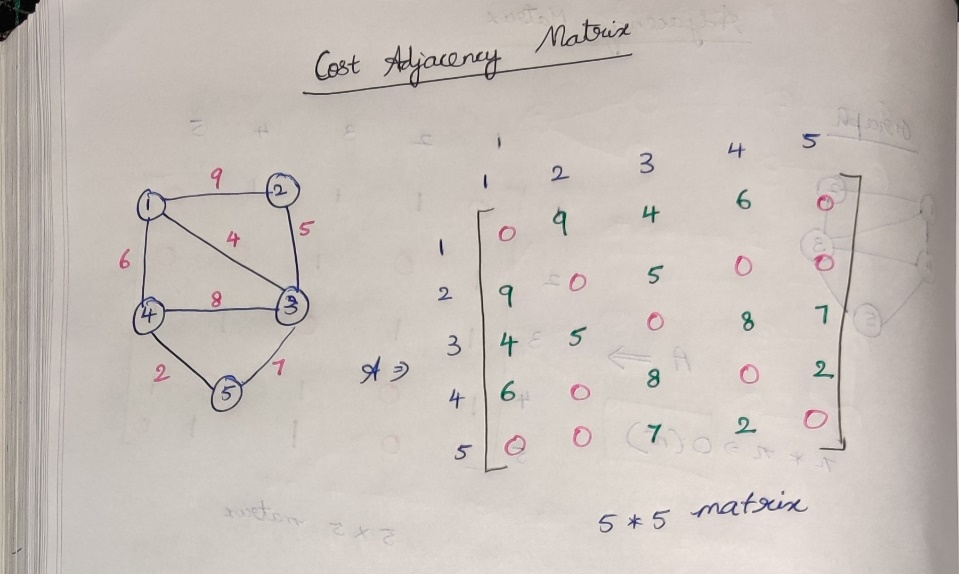 Cost Adjacency Matrix
1 2 3 4 5
9
1 2
6 4 5
8
4 3
2 7
5
1 0 9 4 6 0
2 9 0 5 0 0
3 4 5 0 8 7
A ⇒
4 6 0 8 0 2
5 0 0 7 2 0
5 * 5 matrix